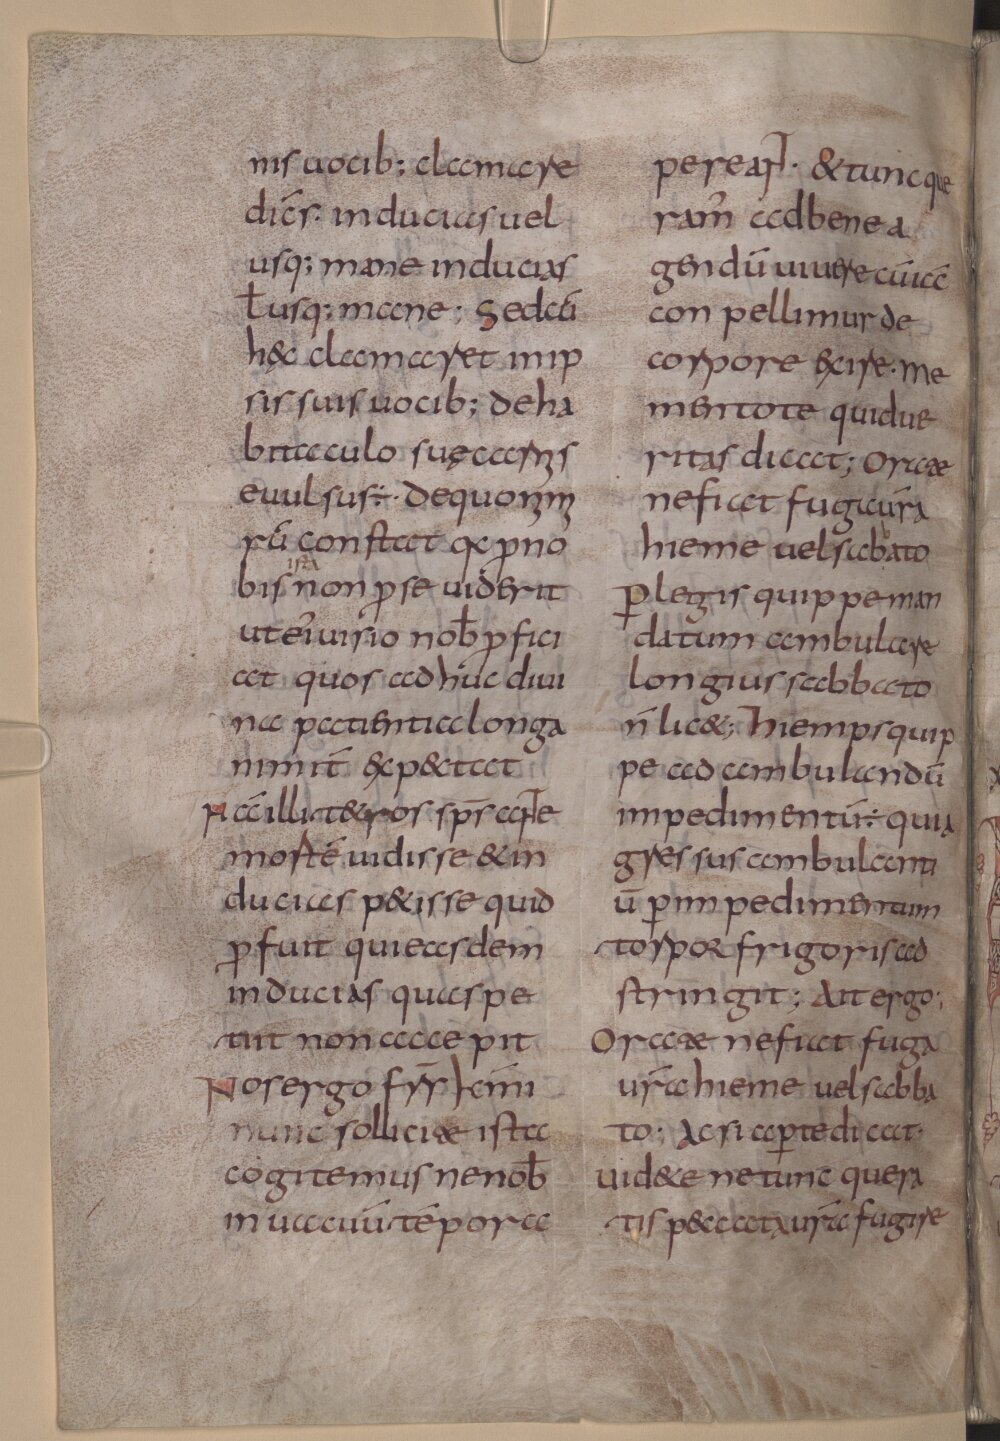 nis uocib; clamare
dicēs. inducias uel
usq; mane inducias
ł usq; mane; Sed cū
h&c clamaret in ip
sis suis uocib; de ha
bitaculo suę carnis
euulsus ÷ de quo nim
rū constat qa p no
bis ista non p se uiderit
ut ei uisio nob̄ p fici
at quos adhuc diui
na patientia longa
nimit̄ exp&ctat
Nā illi t&ros sp̄s ante
mortē uidisse & in
ducias p&isse quid
p fuit qui easdem
inducias quas pe
tiit non accepit
Nos ergo fr̄s kr̄imi
nunc sollicitæ ista
cogitemus ne nob̄
in uacuū tēpora
pereant. & tunc que
ram̄ ad bene a
gendū uiuere cū iā
con pellimur de
corpore exire. me
mentote quid ue
ritas dicat; Oratæ
ne fiat fuga ur̄a
hieme uel sabbato
P legis quippe man
datum ambulare
longius sabbato
n̄ lic&; hiemps quip
pe ad ambulandū
impedimentū ÷ quia
gressus ambulanti
ū p impedimentum
torpor frigoris ad
stringit; Ait ergo;
Oratæ ne fiat fuga
ur̄a hieme uel sabba
to; Ac si apte dicat.
uid&e ne tunc quera
tis peccata ur̄a fugire